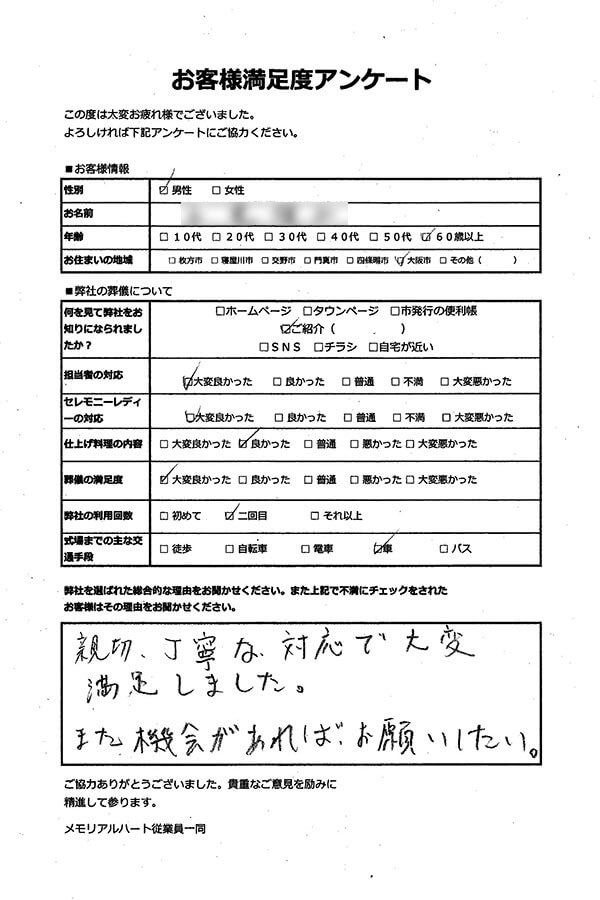 お客様満足度アンケート
この度は大変お疲れ様でございました。
よろしければ下記アンケートにご協力ください。
■お客様情報
性別 ☑男性 □女性
お名前
年齢 □10代 □20代 □30代 □40代 □50代 ☑60歳以上
お住まいの地域 □枚方市 □寝屋川市 □交野市 □門真市 □四條畷市 ☑大阪市 □その他（ ）
■弊社の葬儀について
何を見て弊社をお知りになられましたか？
□ホームページ □タウンページ □市発行の便利帳
☑ご紹介（ ）
□SNS □チラシ □自宅が近い
担当者の対応 ☑大変良かった □良かった □普通 □不満 □大変悪かった
セレモニーレディーの対応 ☑大変良かった □良かった □普通 □不満 □大変悪かった
仕上げ料理の内容 □大変良かった ☑良かった □普通 □悪かった □大変悪かった
葬儀の満足度 ☑大変良かった □良かった □普通 □悪かった □大変悪かった
弊社の利用回数 □初めて ☑二回目 □それ以上
式場までの主な交通手段 □徒歩 □自転車 □電車 ☑車 □バス
弊社を選ばれた総合的な理由をお聞かせください。また上記で不満にチェックをされた
お客様はその理由をお聞かせください。
親切、丁寧な対応で大変
満足しました。
また機会があれば、お願いしたい。
ご協力ありがとうございました。貴重なご意見を励みに
精進して参ります。
メモリアルハート従業員一同